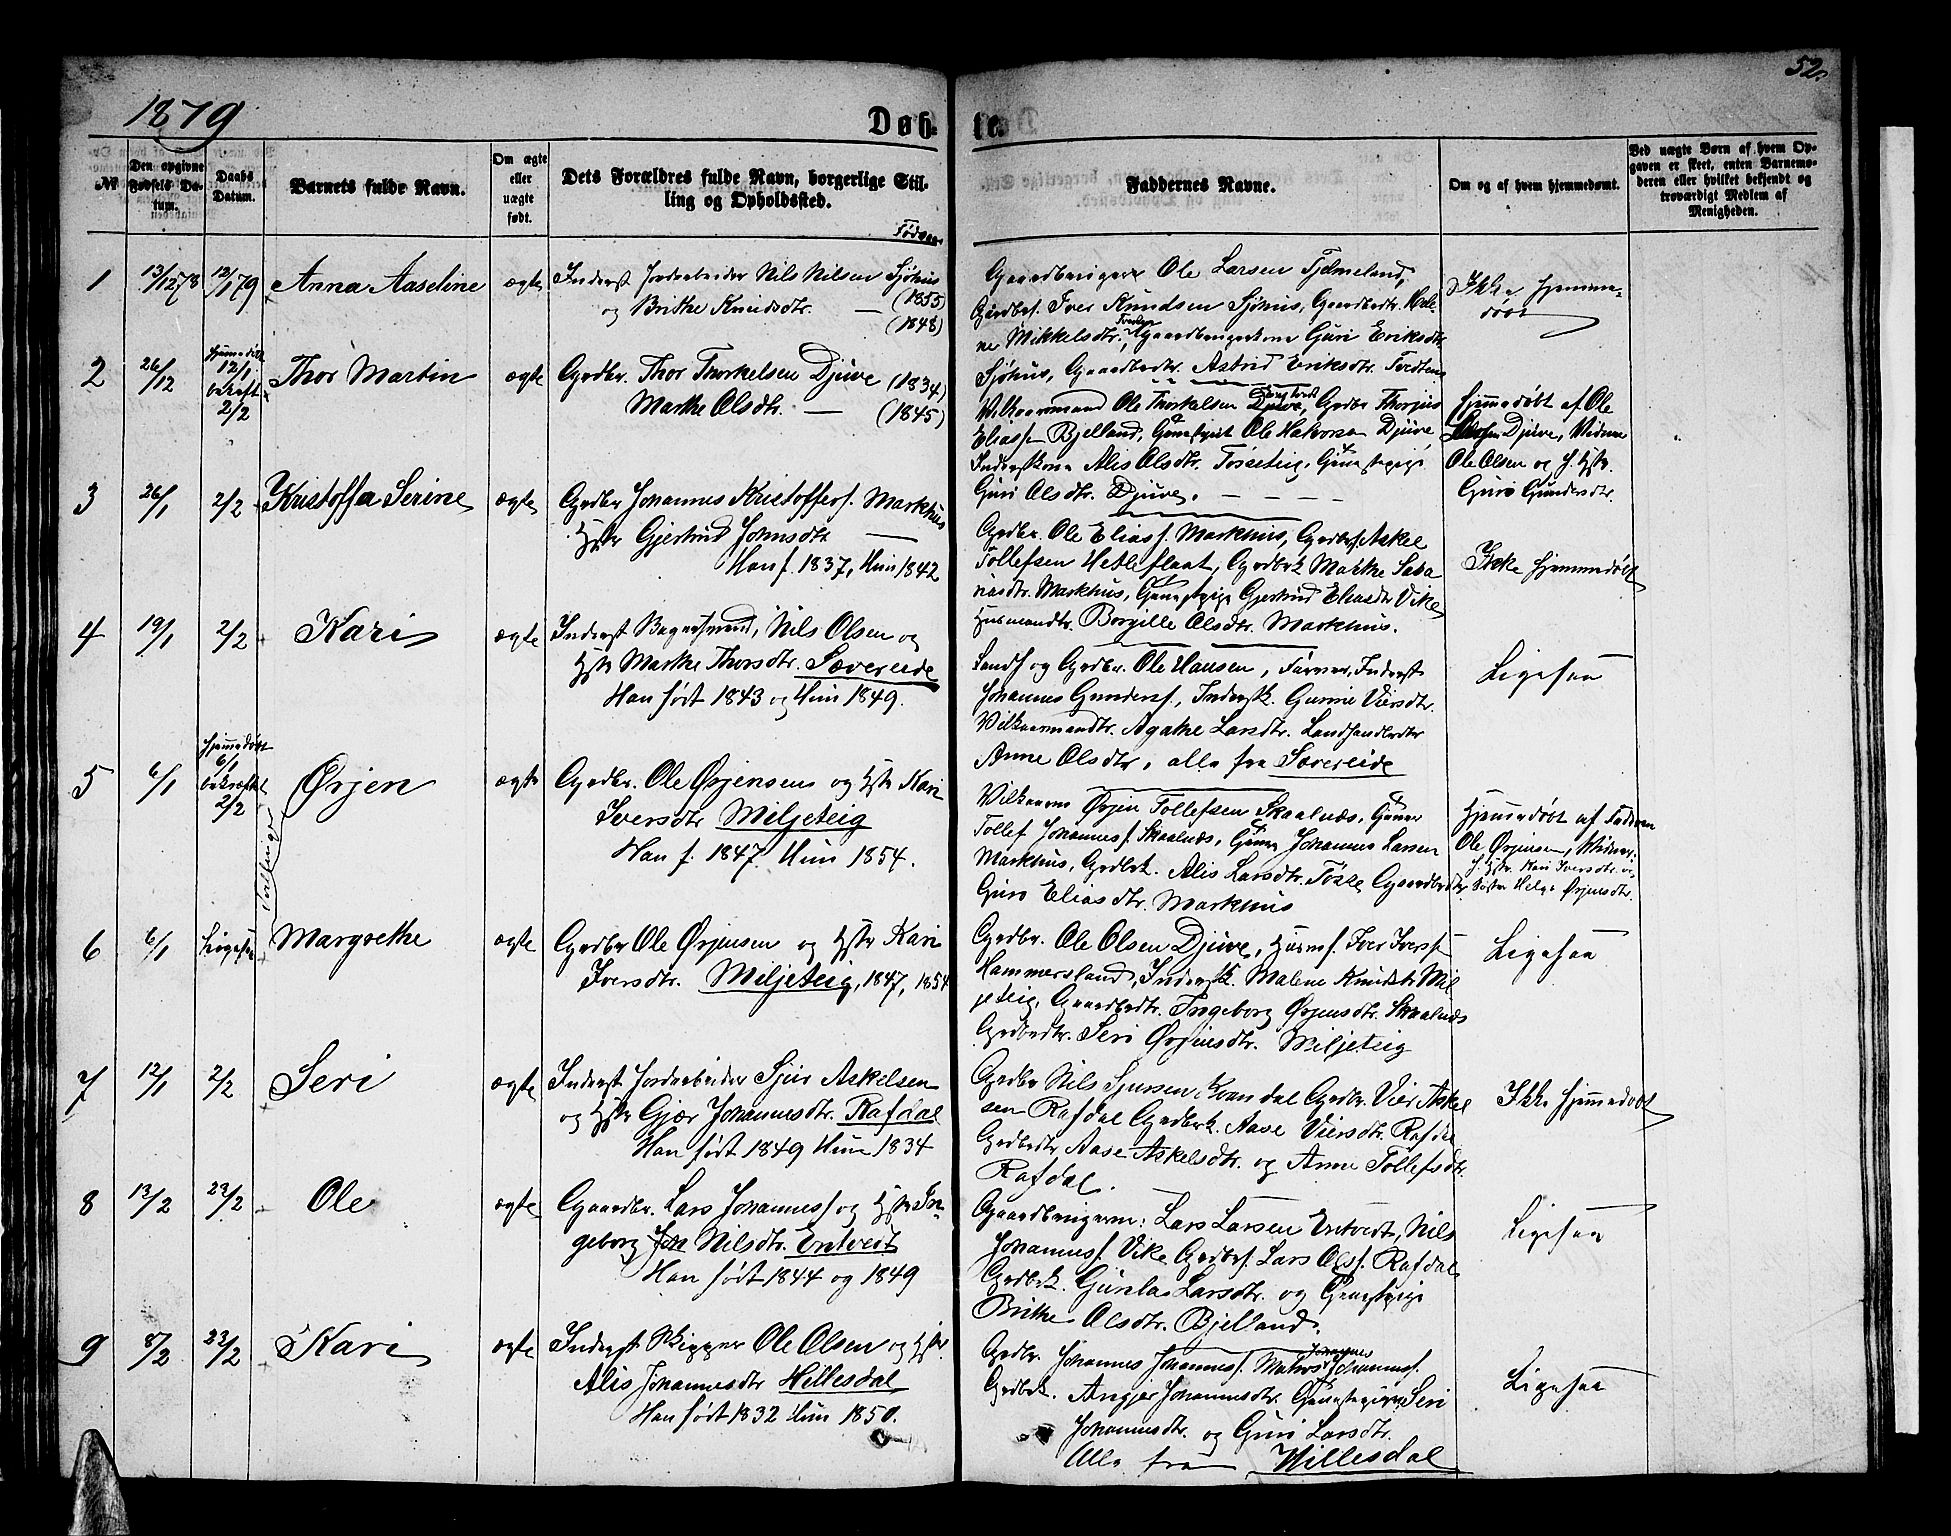 52.
1879
Døb- te.
№
Den opgivne Fødsels Datum.
Daabs Datum.
Barnets fulde Navn.
Om ægte eller uægte født.
Dets Forældres fulde Navn, borgerlige Stilling og Opholdssted.
Faddernes Navne.
Om og af hvem hjemmedøbt.
Ved uægte Børn af hvem Opgaven er skeet, enten Barnemoderen eller hvilket bekjendt og troværdigt Medlem af Menigheden.
1
13/12 78
12/1 79
Anna Aaseline
ægte
Inderst Jordarbeider Nils Nilsen Sjöhus (1855)
og Brithe Knudsdtr. — (1848)
Gaardbruger Ole Larsen Tjelmeland,
Grdbrs. Iver Knudsen Sjöhus, Gaardbrdtr. Male-
ne Mikkelsdtr. Gaardbrugerkone Guri Eriksdtr
Sjöhus, Gaardbrdtr. Astrid Eriksdtr.
Ikke hjemme-
døbt
2
26/12
hjemmedöbt
12/1
bekræft
2/2
Thor Martin
ægte
Grdbr. Thor Thorkelsen Djuve (1834)
Marthe Olsdtr. — (1845)
Vilkaarsmand Ole Thorkelsen Djuve, Grdbr. Thorjus
Eliass. Bjelland, Ole Halvorsen Djuve,
Inderstkone Alis Olsdtr. Tösseteig,
Guri Olsdtr. Djuve. — — — —
Hjemmedøbt af Ole
Djuve, Vidner
Ole Olsen og
Guro Gundersdtr.
3
26/1
2/2
Kristoffa Serine
ægte
Grdbr Johannes Kristoffers. Markhus
Hstr Gjertrud Johnsdtr —
Han f. 1837, Hun 1842
Grdbr. Ole Eliass. Markhus, Grdbrs. Askel
Tollefsen Hetleflaat, Grdbrk Marthe Saba
niasdtr. Markhus, Gjertrud Eliasdtr Vike
Husmandtr. Borgille Olsdtr. Markhus.
Ikke hjemmedøbt
4
19/1
2/2
Kari
ægte
Inderst Bagersvend, Nils Olsen og
Hstr Marthe Thorsdtr. Sævereide
Han født 1843 og Hun 1849.
Landh og Grdbr. Ole Hansen, Inderst
Johannes Gunders., Inderstk. Gunne Viersdtr.
Vilkaarmandtr. Agathe Larsdtr. Landhandlerdtr
Anne Olsdtr, alle fra Sævereide
Ligesaa
5
6/1
hjemmedöbt
6/1
bekræftet
2/2
Ørjen
Tvillinger
ægte
Grdbr. Ole Ørjensens og Hstr Kari
Iversdtr Miljeteig
Han f. 1847. Hun 1854.
Vilkaarm Ørjen Tollefsen Skaalnæs,
Tollef Johanness. Skaalnæs, Johannes Larsen
Markhus, Grdbrk. Alis Larsdtr. Tösse Gaardbrdtr
Guro Eliasdtr. Markhus
Hjemmedøbt af Faderen
Ole Ørjensen, Vidner:
Hstr. Kari Iversdtr. og
Helga Ørjensdtr.
6
6/1
Ligesaa
Margrethe
ægte
Grdbr Ole Ørjensen og Hstr Kari
Iversdtr. Miljeteig, 1847, 1854
Grdbr. Ole Olsen Djuve, Husms. Iver Ivers.
Hammersland, Inderstk. Malene Knudsdtr Mil
jeteig, Gaardbrdtr. Ingeborg Ørjensdtr. Skaalnæs
Grdbrdtr. Seri Ørjensdtr. Miljeteig
Ligesaa
7
12/1
2/2
Seri
ægte
Inderst Jordarbeider Sjur Askelsen
og Hstr Gjær Johannesdtr. Rafdal
Han født 1849 Hun 1834
Grdbr Nils Sjursen Kvandal Grdbr. Vier Askel
sen Rafdal Grdbrk. Aase Viersdtr. Rafdal
Grdbrdtr Aase Askelsdtr. og Anne Tollefsdtr.
Rafdal.
Ikke hjemmedøbt
8
13/2
23/2
Ole
ægte
Gaardbr. Lars Johanness og Hstr In-
geborg Nilsdtr. Entvedt
Han født 1844 og 1849
Gaardbrugerne: Lars Larsen Entvedt, Nils
Johanness. Vike Grdbrs. Lars Olss. Rafdal
Grdbrk. Gunla Larsdtr. og
Brithe Olsdtr. Bjelland.
Ligesaa
9
8/2
23/2
Kari
ægte
Inderst Skipper Ole Olsen og Hstr
Alis Johannesdtr Hellesdal
Han født 1832 Hun 1850.
Grdbr. Johannes Johanness. Matros Johannes Johanness.
Grdbrk. Angjer Johannesdtr. Seri
Johannesdtr. og Guri Larsdtr.
Alle fra Hillesdal
Ligesaa